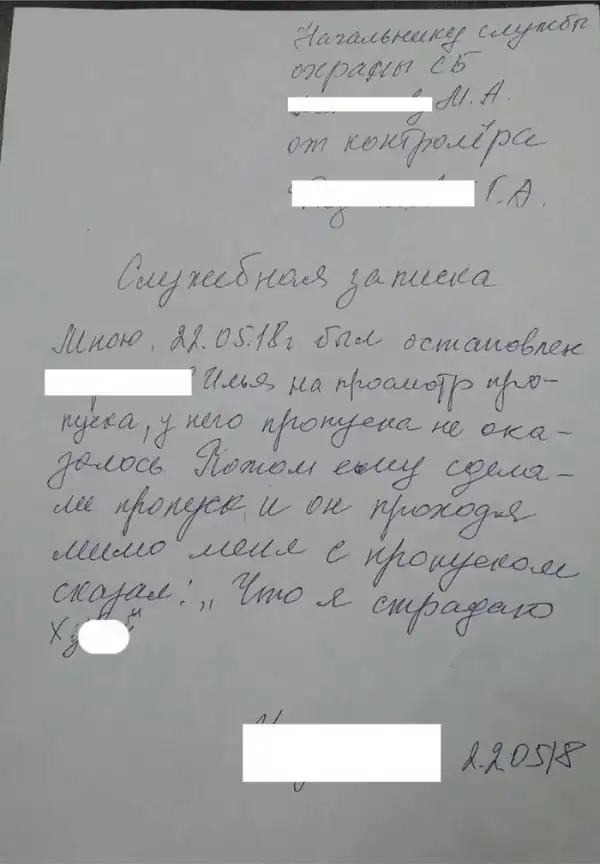 Начальнику службы
охраны СБ
М.А.
от контролёра
Г.А.
Служебная записка
Мною 22.05.18г был остановлен
Илья на просмотр про-
пуска, у него пропуска не ока-
залось. Потом ему сдела-
ли пропуск и он проходя
мимо меня с пропуском
сказал: „Что я страдаю
22.05.18